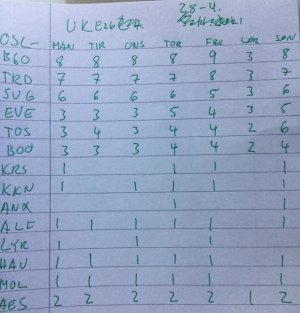 UKE 28-4.
OSL- MAN TIR ONS TOR FRE LØR SØN
BGO 8 8 8 8 9 3 8
TRD 7 7 7 7 8 3 7
SVG 6 6 6 6 5 3 6
EVE 3 3 3 5 4 3 5
TOS 3 4 3 4 4 2 6
BOO 3 3 3 4 4 2 4
KRS 1 1 1
KKN 1 1 1 1 1
ANX 1 1
ALF 1 1 1 1 1 1
LYR 1 1 1
HAU 1 1 1 1 1 1
MOL 1 1 1 1 1 1
AES 2 2 2 2 2 1 2